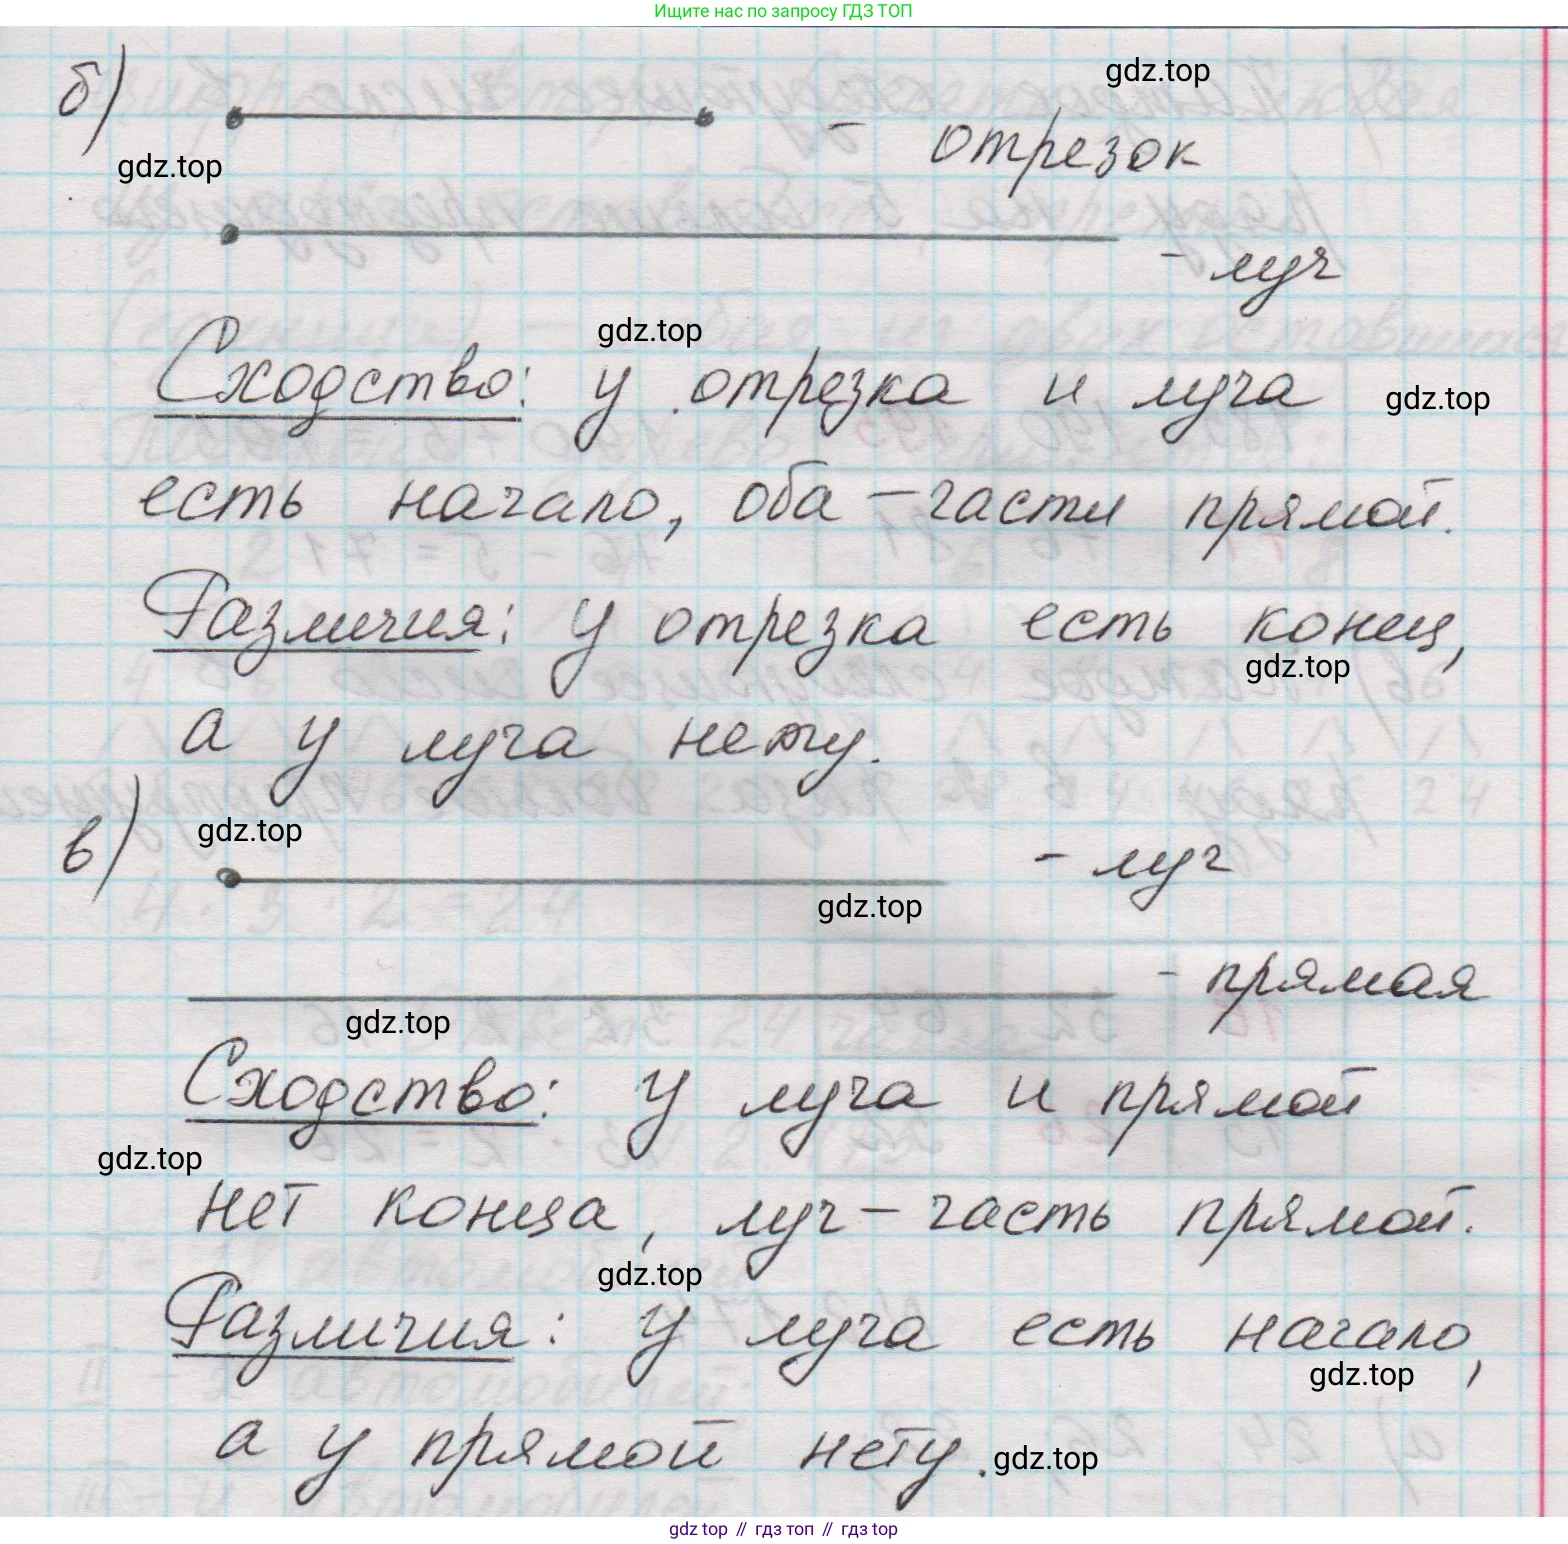 Ищите нас по запросу ГДЗ ТОП
gdz.top
б)
- отрезок
gdz.top
- луч
gdz.top
Сходство: у отрезка и луча
gdz.top
есть начало, оба - части прямой.
Различия: у отрезка есть конец,
gdz.top
а у луча нету.
в)
gdz.top
- луч
gdz.top
- прямая
gdz.top
Сходство: у луча и прямой
gdz.top
нет конца, луч - часть прямой.
gdz.top
Различия: у луча есть начало,
gdz.top
а у прямой нету.
gdz.top
gdz top // гдз топ // гдз top